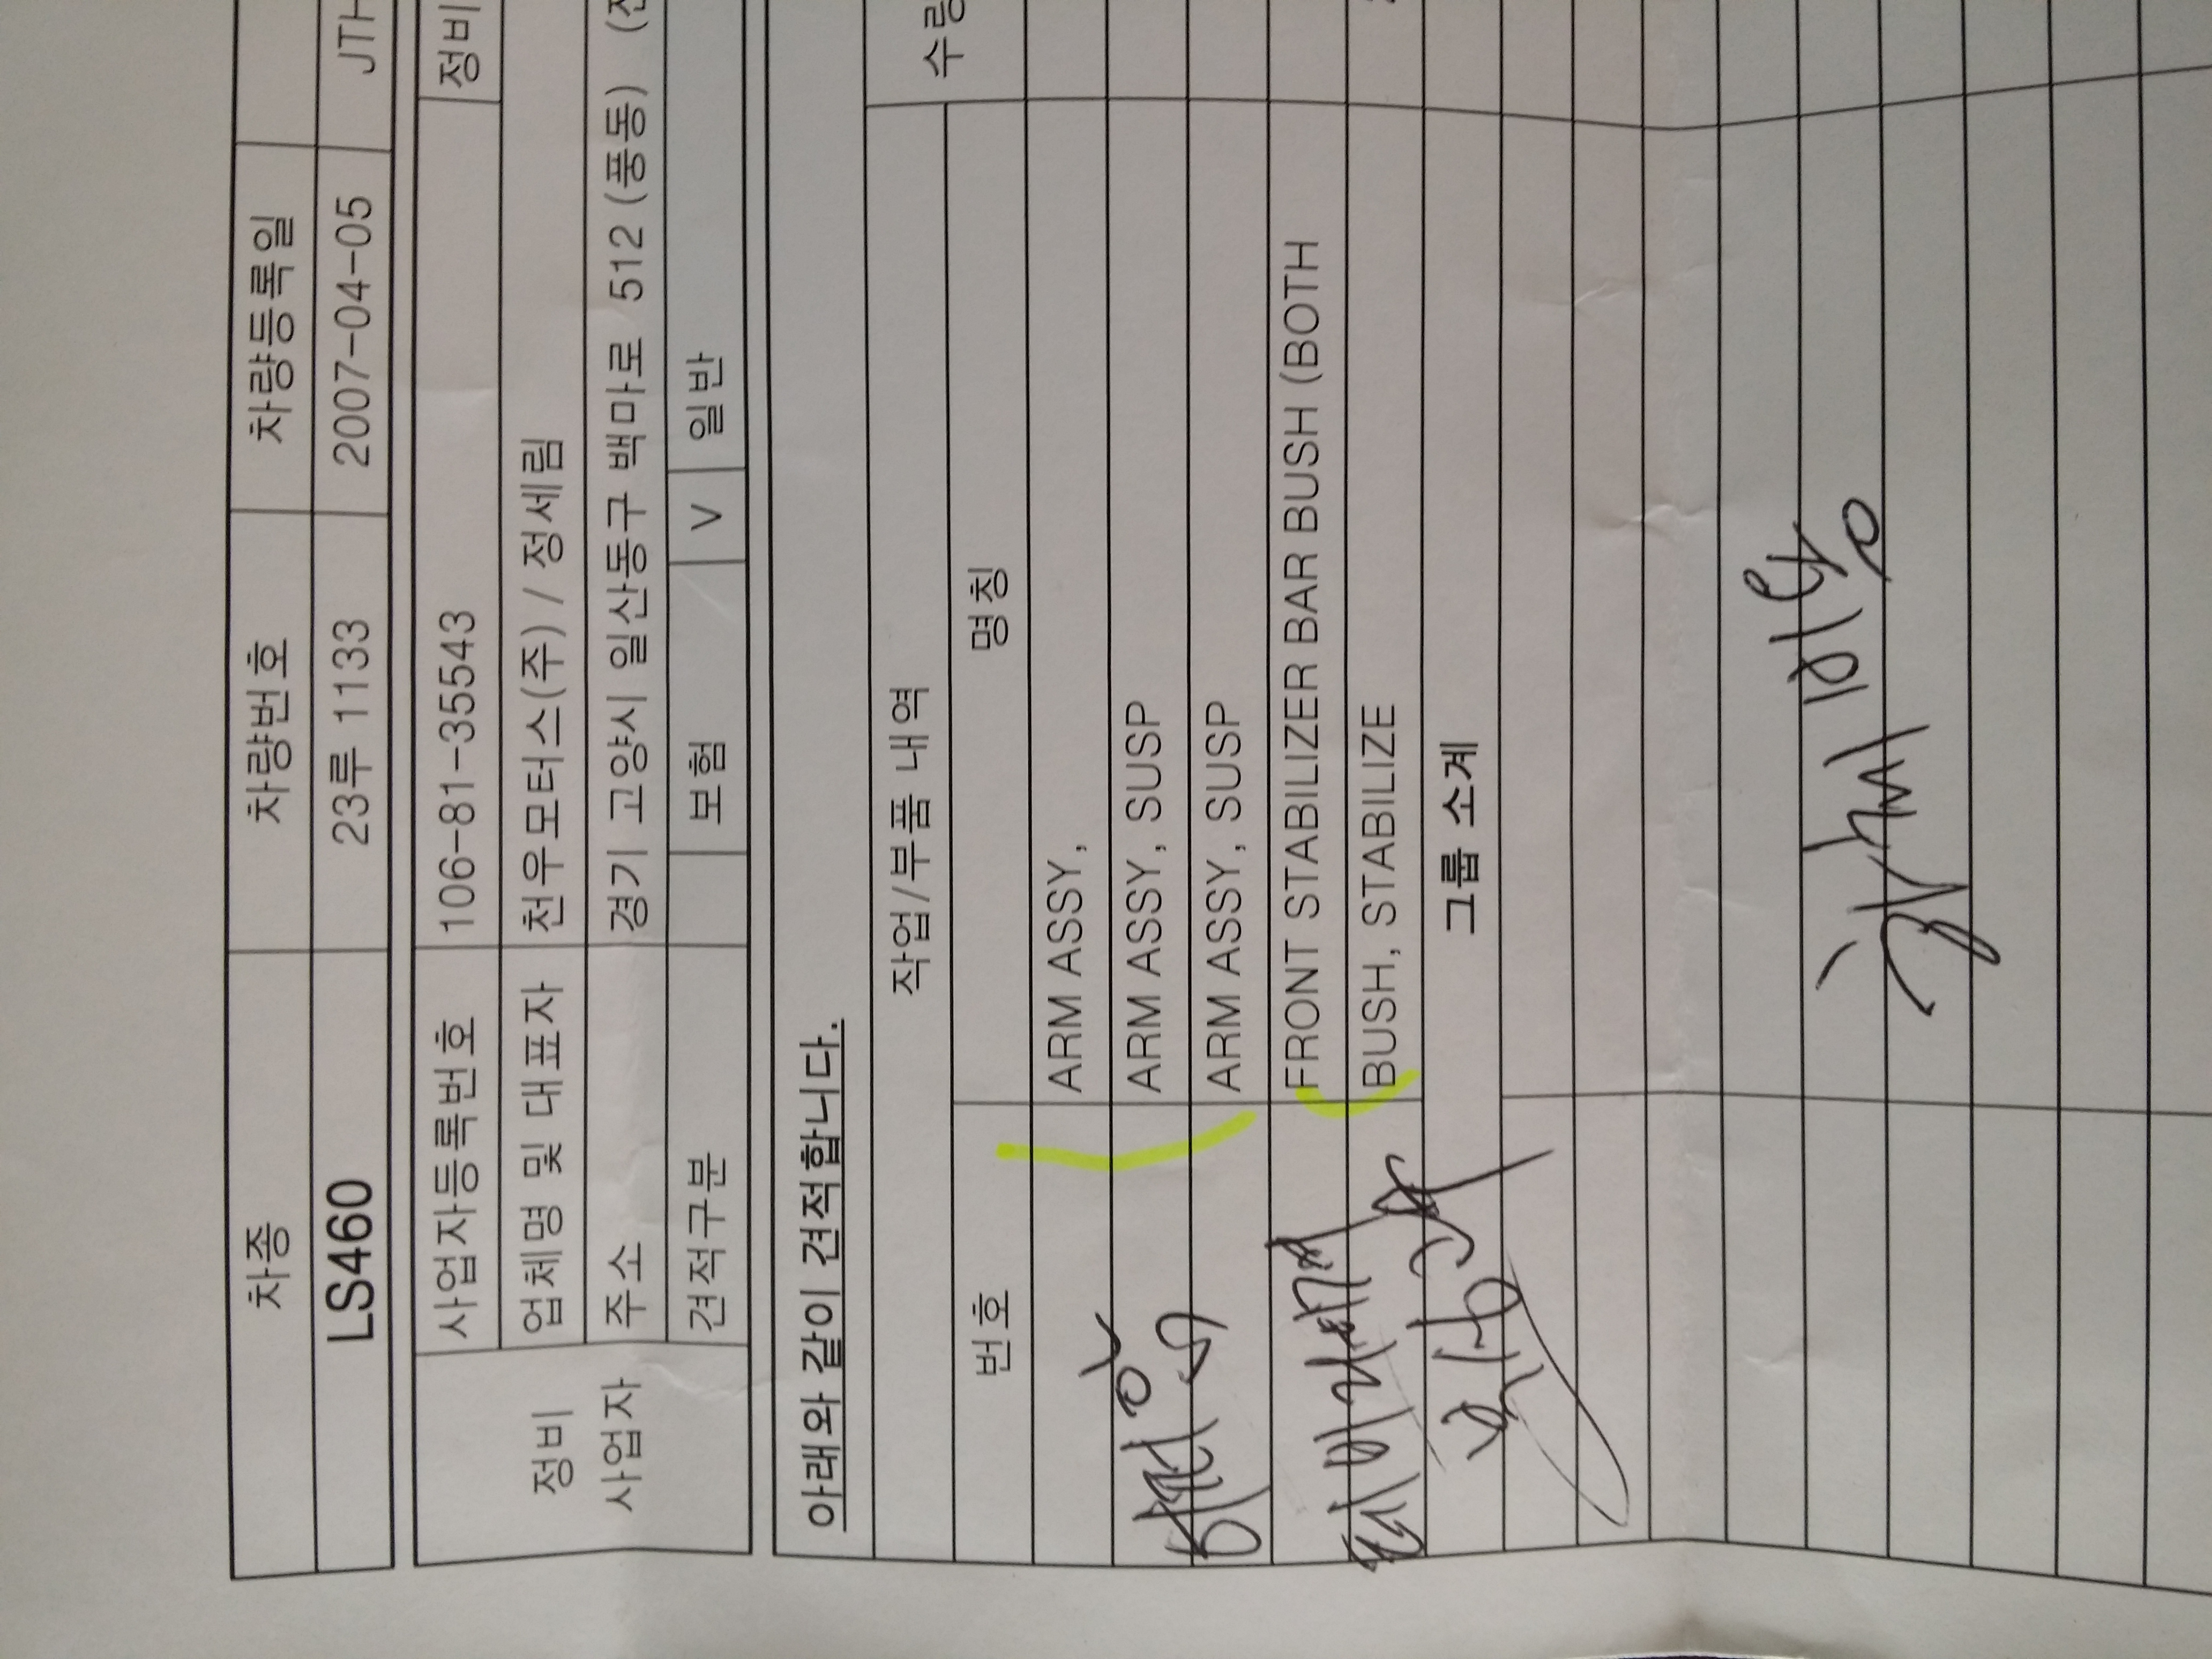 차종 차량번호 차량등록일
LS460 23루 1133 2007-04-05 JTH
정비 사업자
사업자등록번호 106-81-35543 정비
업체명 및 대표자 천우모터스(주) / 정세림
주소 경기 고양시 일산동구 백마로 512 (풍동)
견적구분 보험 V 일반
아래와 같이 견적합니다.
작업/부품 내역
번호 명칭 수량
ARM ASSY,
ARM ASSY, SUSP
ARM ASSY, SUSP
FRONT STABILIZER BAR BUSH (BOTH
BUSH, STABILIZE
그룹 소계